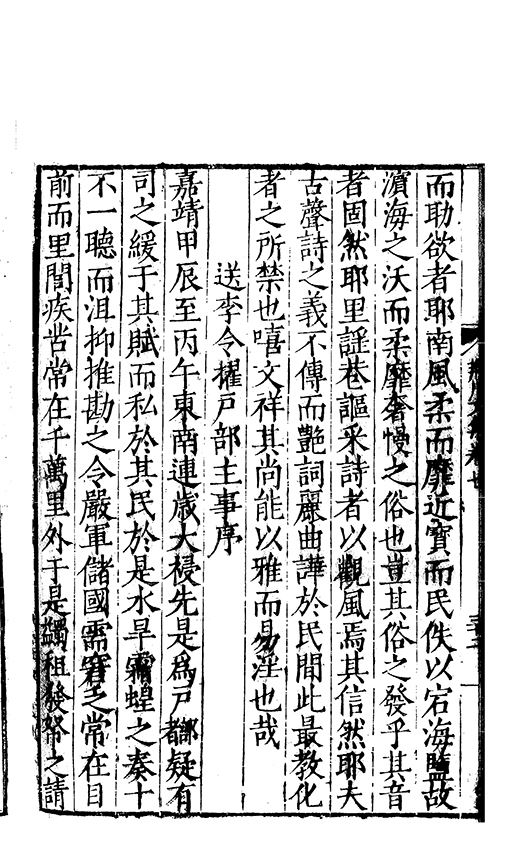 而助欲者耶南風柔而靡近寳而民佚以宕海鹽故
濵海之沃而柔靡奢慢之俗也豈其俗之發乎其音
者固然耶里謡巷謳采詩者以觀風焉其信然耶夫
古聲詩之義不傳而艷詞麗曲譁於民間此最教化
者之所禁也嘻文祥其尚能以雅而易淫也哉
送李令擢戸部主事序
嘉靖甲辰至丙午東南連歲大祲先是爲戸部者疑有
司之緩于其賦而私於其民於是水旱霜蝗之奏十
不一聽而沮抑推勘之令嚴軍儲國需窘乏之常在目
前而里閭疾苦常在千萬里外于是蠲租發帑之請